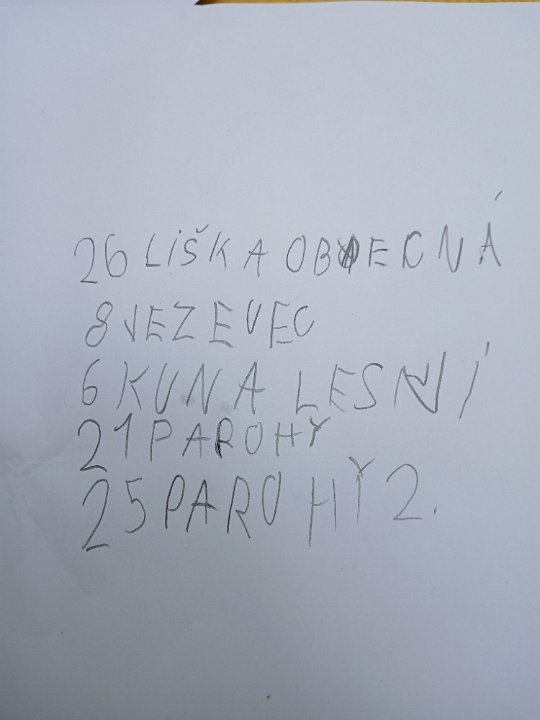 26 LIŠKA OBECNÁ
8 JEZEVEC
6 KUNA LESNÍ
21 PAROHY
25 PAROHY 2.